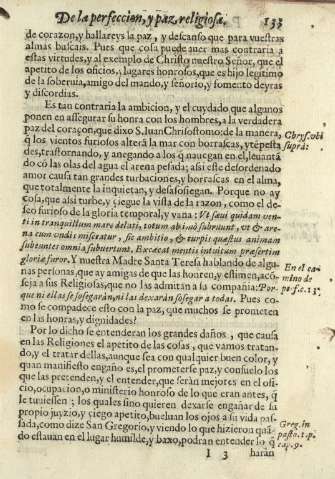 De la perfeccion, y paz religiosa. 133
de corazon, y hallareys la paz, y descanso que para vuestras
almas buscais. Pues que cosa puede auer mas contraria a
estas virtudes, y al exemplo de Christo nuestro Señor, que el
apetito de los oficios, y lugares honrosos, que es hijo legitimo
de la soberuia, amigo del mando, y señorio, y fomento de yras
y discordias.
Es tan contraria la ambicion, y el cuydado que algunos
ponen en assegurar su honra con los hombres, a la verdadera
paz del coraçon, que dixo S. Iuan Chrisostomo: de la manera,
q̃ los vientos furiosos alterã la mar con borrascas, y tẽpesta
des, trastornando, y anegando a los q̃ nauegan en el, leuantã
do cõ las olas del agua el arena pesada; assi este desordenado
amor causa tan grandes turbaciones, y borrascas en el alma,
que totalmente la inquietan, y desasosiegan. Porque no ay
cosa, que assi turbe, y ciegue la vista de la razon, como el de-
seo furioso de la gloria temporal, y vana: Vt sæui quidam ven-
ti in tranquillum mare delati, totum ab imo subruunt, vt & are-
na cum vndis misceatur, sic ambitio, & turpis quæstus animam
subeuntes omnia subuertunt. Excæcat mentis intuitum præsertim
gloriæ furor. Y nuestra Madre Santa Teresa hablando de algu-
nas personas, que ay amigas de que las honren, y estimen, acõ-
seja a sus Religiosas, que no las admitan a su compañia: Por-
que ni ellas se sosegarán, ni las dexarán sosegar a todas. Pues co-
mo se compadece esto con la paz, que muchos se prometen
en las honras, y dignidades?
Por lo dicho se entenderan los grandes daños, que causa
en las Religiones el apetito de las cosas, que vamos tratan-
do, y el tratar dellas, aunque sea con qualquier buen color, y
quan manifiesto engaño es, el prometerse paz, y consuelo los
que las pretenden, y el entender, que serán mejores en el ofi-
cio, ocupacion, o ministerio honroso de lo que eran antes, q̃
le tuuiessen; los quales sino quieren dexarse engañar de su
propio juyzio, y ciego apetito, bueluan los ojos a su vida pas-
sada, como dize San Gregorio, y viendo lo que hizieron quã-
do estauan en el lugar humilde, y baxo, podran entender lo q̃
I 3 harán
Chrys. vbi
supra:
En el ca-
mino de
pe
Greg. in
pasto. 1. p.
cap. 9.